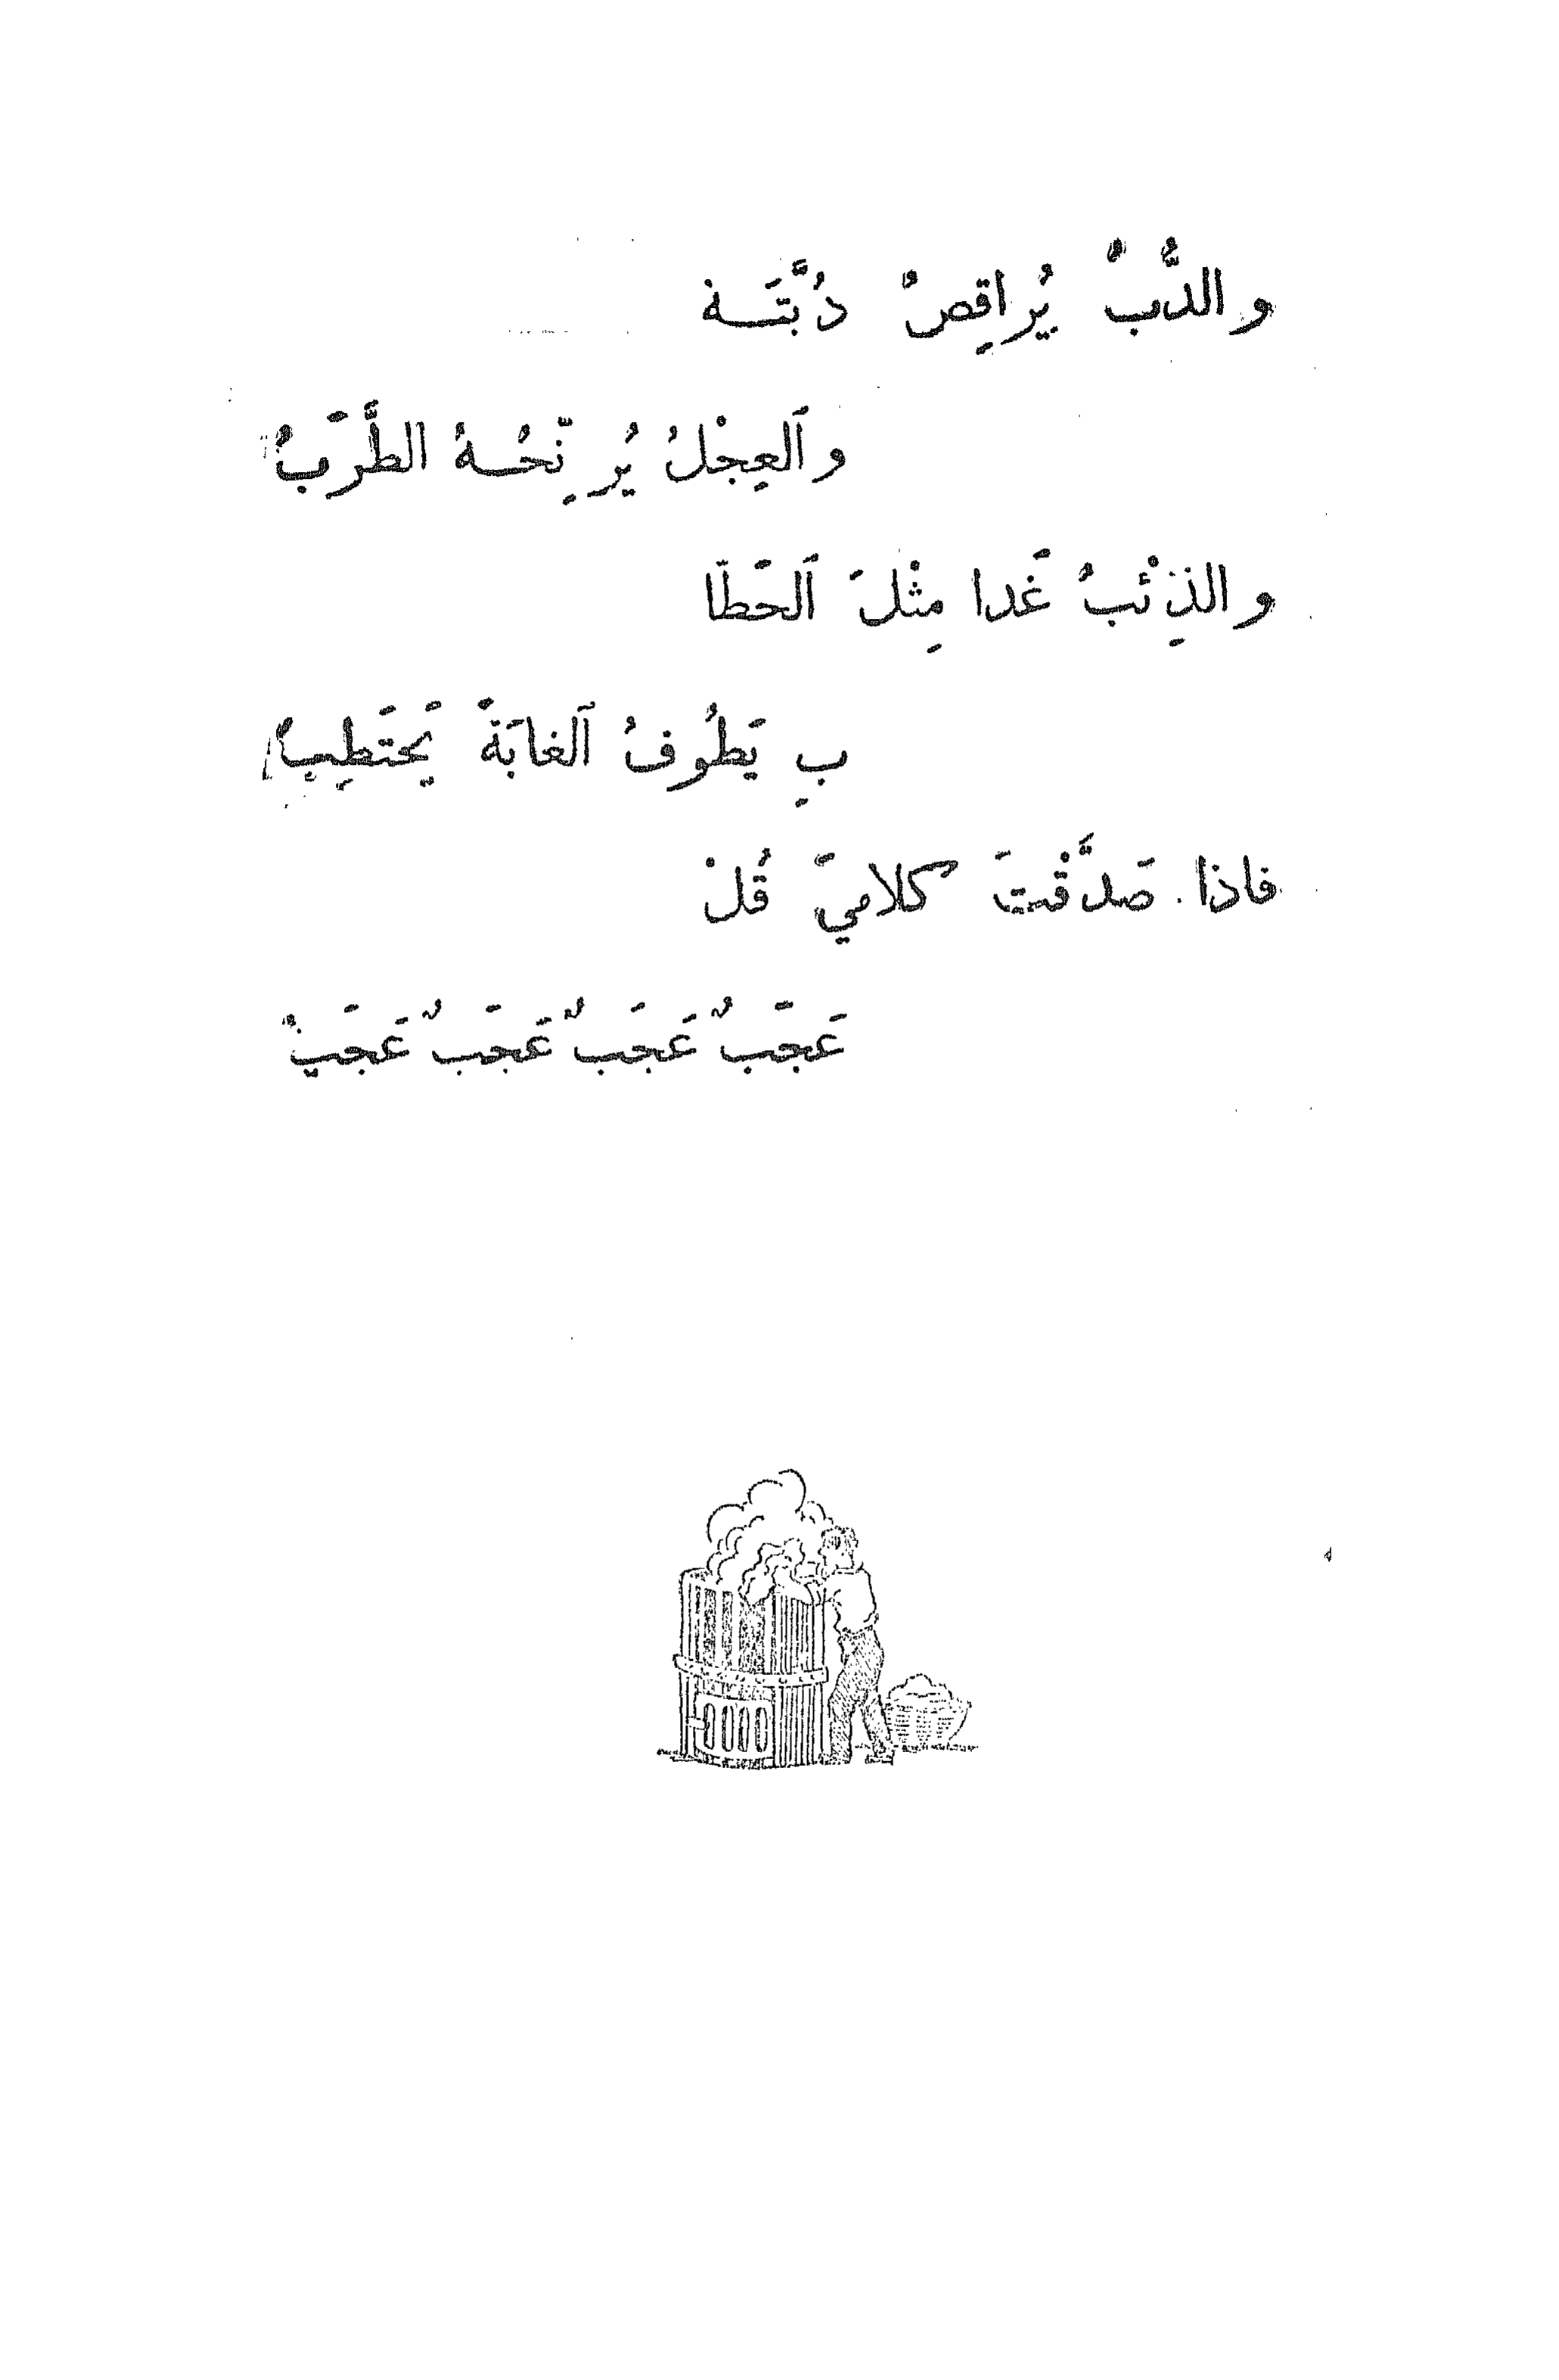 والدُّبُّ يُراقِصُ دُبَّتَـهْ
وَٱلعِجْلُ يُرَنِّحُـهُ الطَّرَبُ
والذِئْبُ غَدا مِثْلَ ٱلحَطّا
بِ يَطُوفُ ٱلغابَةَ يَحْتَطِبُ
فاذا صَدَّقْتَ كلامِيَ قُلْ
عَجَبٌ عَجَبٌ عَجَبٌ عَجَبٌ